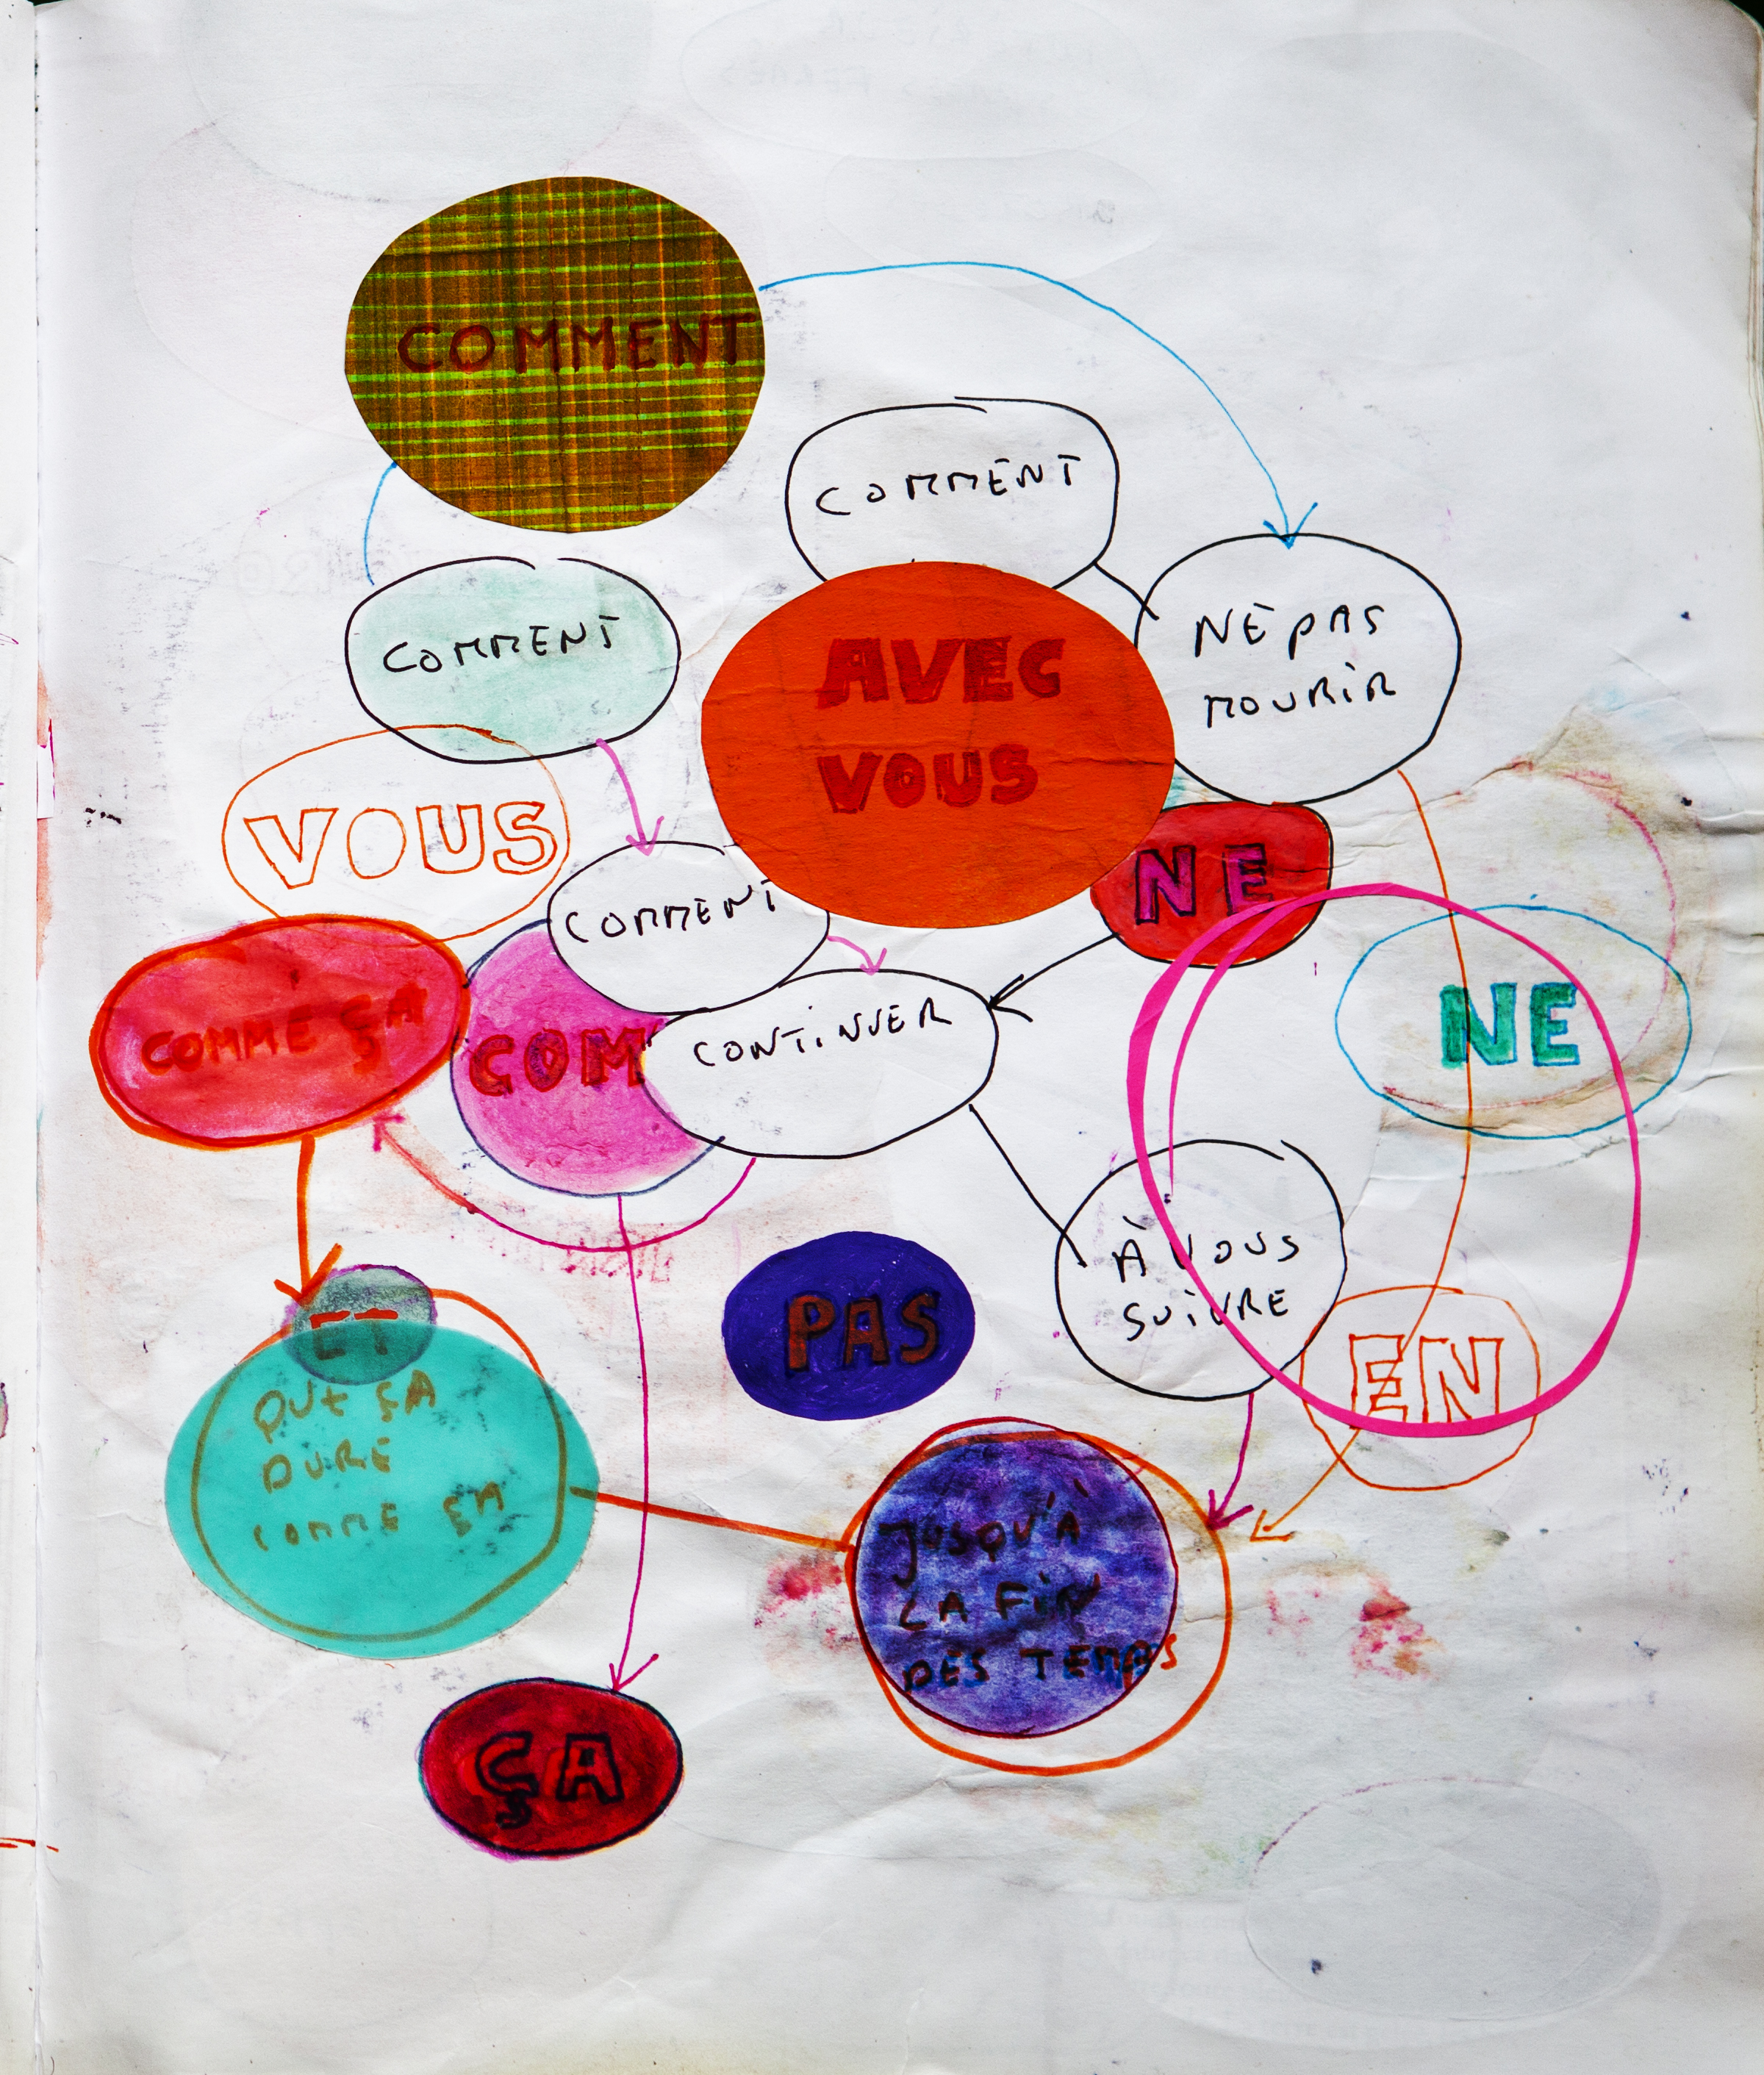 COMMENT
COMMENT
COMMENT
AVEC
VOUS
NE PAS
MOURIR
VOUS
COMMENT
NE
COMME ÇA
COM
CONTINUER
NE
À VOUS
SUIVRE
ET
PAS
EN
QUE ÇA
DURE
COMME ÇA
JUSQU'À
LA FIN
DES TEMPS
ÇA